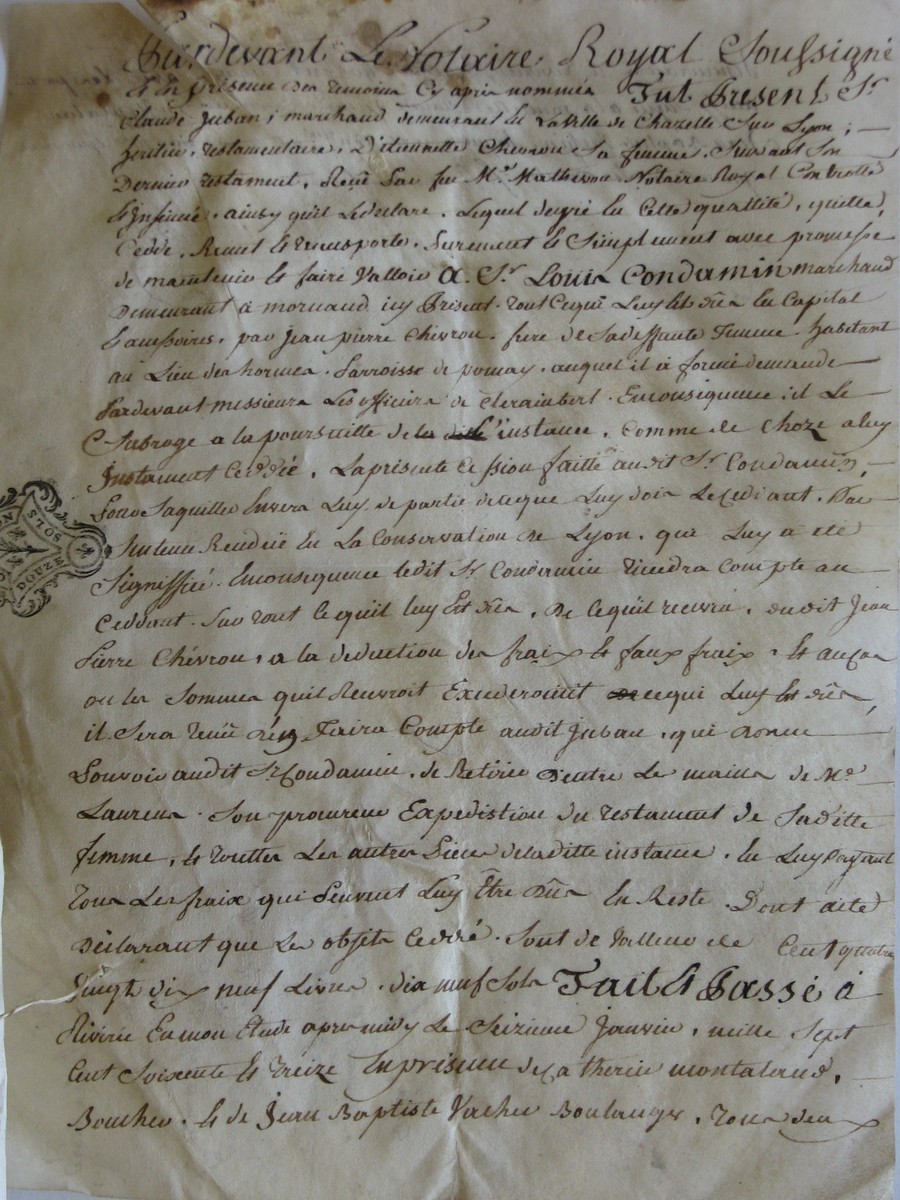 Pardevant Le Notaire Royal Soussigné
et en presence des temoins Cy apres nommés Fut Present Sr
Claude Juban, marchand demeurant en La Ville de Chazelle Sur Lyon,
heritier, testamentaire, D'etiennette Chevron Sa femme, Suivant Son
Dernier testament, Reçu Par feu Me Notaire Royal Controllé
et Insinué, ainsy qu'il le declare, Lequel de gré en Cette quallité, quitte,
Cedde, Remet et transporte, Purement et Simplement avec promesse
de maintenir et faire Valloir A Sr Louis Condamin marchand
Demeurant à mornand icy Present, tout Cequi Luy est dû en Capital
et accessoires, par Jean pierre Chevron, frere de Sa deffunte Femme, habitant
au Lieu des hormes, Parroisse de pomay, auquel il à formé demande
Pardevant messieurs Les officiers de Clerimbert, En consequence, il Le
Subroge a la poursuitte de la ditte instance, Comme de Choze a luy
Justament Ceddée, La presente Cession faitte audit Sr Condamin,
de partie de ceque Luy doit Le Cedant, Par
Sentence Rendue en La Conservation de Lyon, qui Luy a eté
Signiffié, En consequence ledit Sr Condamin tiendra Compte au
Ceddant, Sur tout ce qu'il luy est dû, de ce qu'il recevra, dudit Jean
Pierre Chévron, a la deduction des fraix et faux fraix, et au cas
ou les Sommes qu'il Recevroit Exederoint cequi Luy est dû,
il Sera tenu d'en Faire Compte audit Juban, qui donne
Pouvoir audit Sr Condamin, de Retirer D'entre Les mains de Me
Laurens, Son procureur Expedistion du testament de Saditte
femme, et touttes Les autres Pieces de laditte instance, en Luy Payant
tous Les fraix qui Peuvent Luy Être dûs en Reste, Dont acte
Déclarant que Les objets Ceddés, Sont de Valleur de Cent quatre
Vingt dix neuf Livres, dix neuf Sols Fait et Passé à
Riverie En mon Etude apres midy Le Seizieme Janvier, mille Sept
Cent Soixente et treize En presence de Catherin montaland,
Boucher, et de Jean Baptiste Vacher Boulanger, tous deux
SOLS
DOUZE